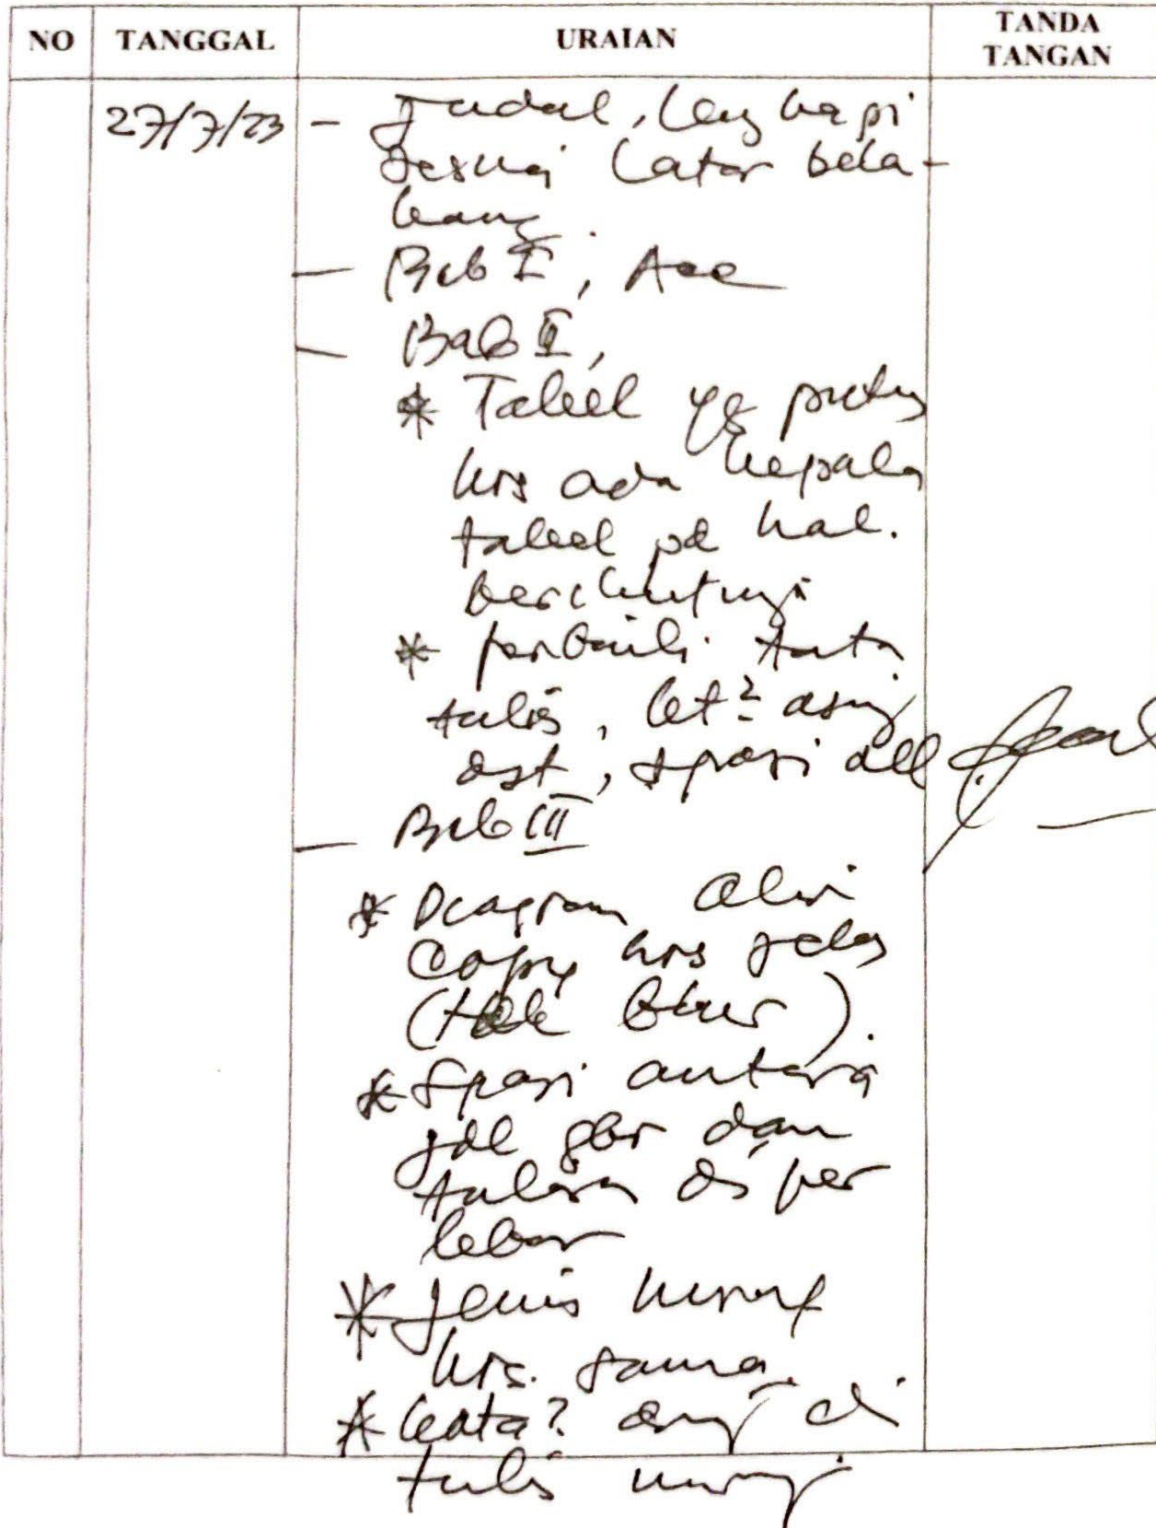 NO TANGGAL URAIAN TANDA TANGAN
27/7/23 - Judul, lengkapi
sesuai latar bela-
kang.
- Bab I, Acc
- Bab II,
* Tabel yg putus
hrs ada kepala
tabel pd hal.
berikutnya
* perbaiki tata
tulis, kt² asing
dst, spasi dll
- Bab III
* Diagram alir
Copy hrs jelas
(tdk blur).
* Spasi antara
jdl gbr dan
tulisan diper
lebar
* Jenis huruf
hrs. sama.
* kata² asing di
tulis miring